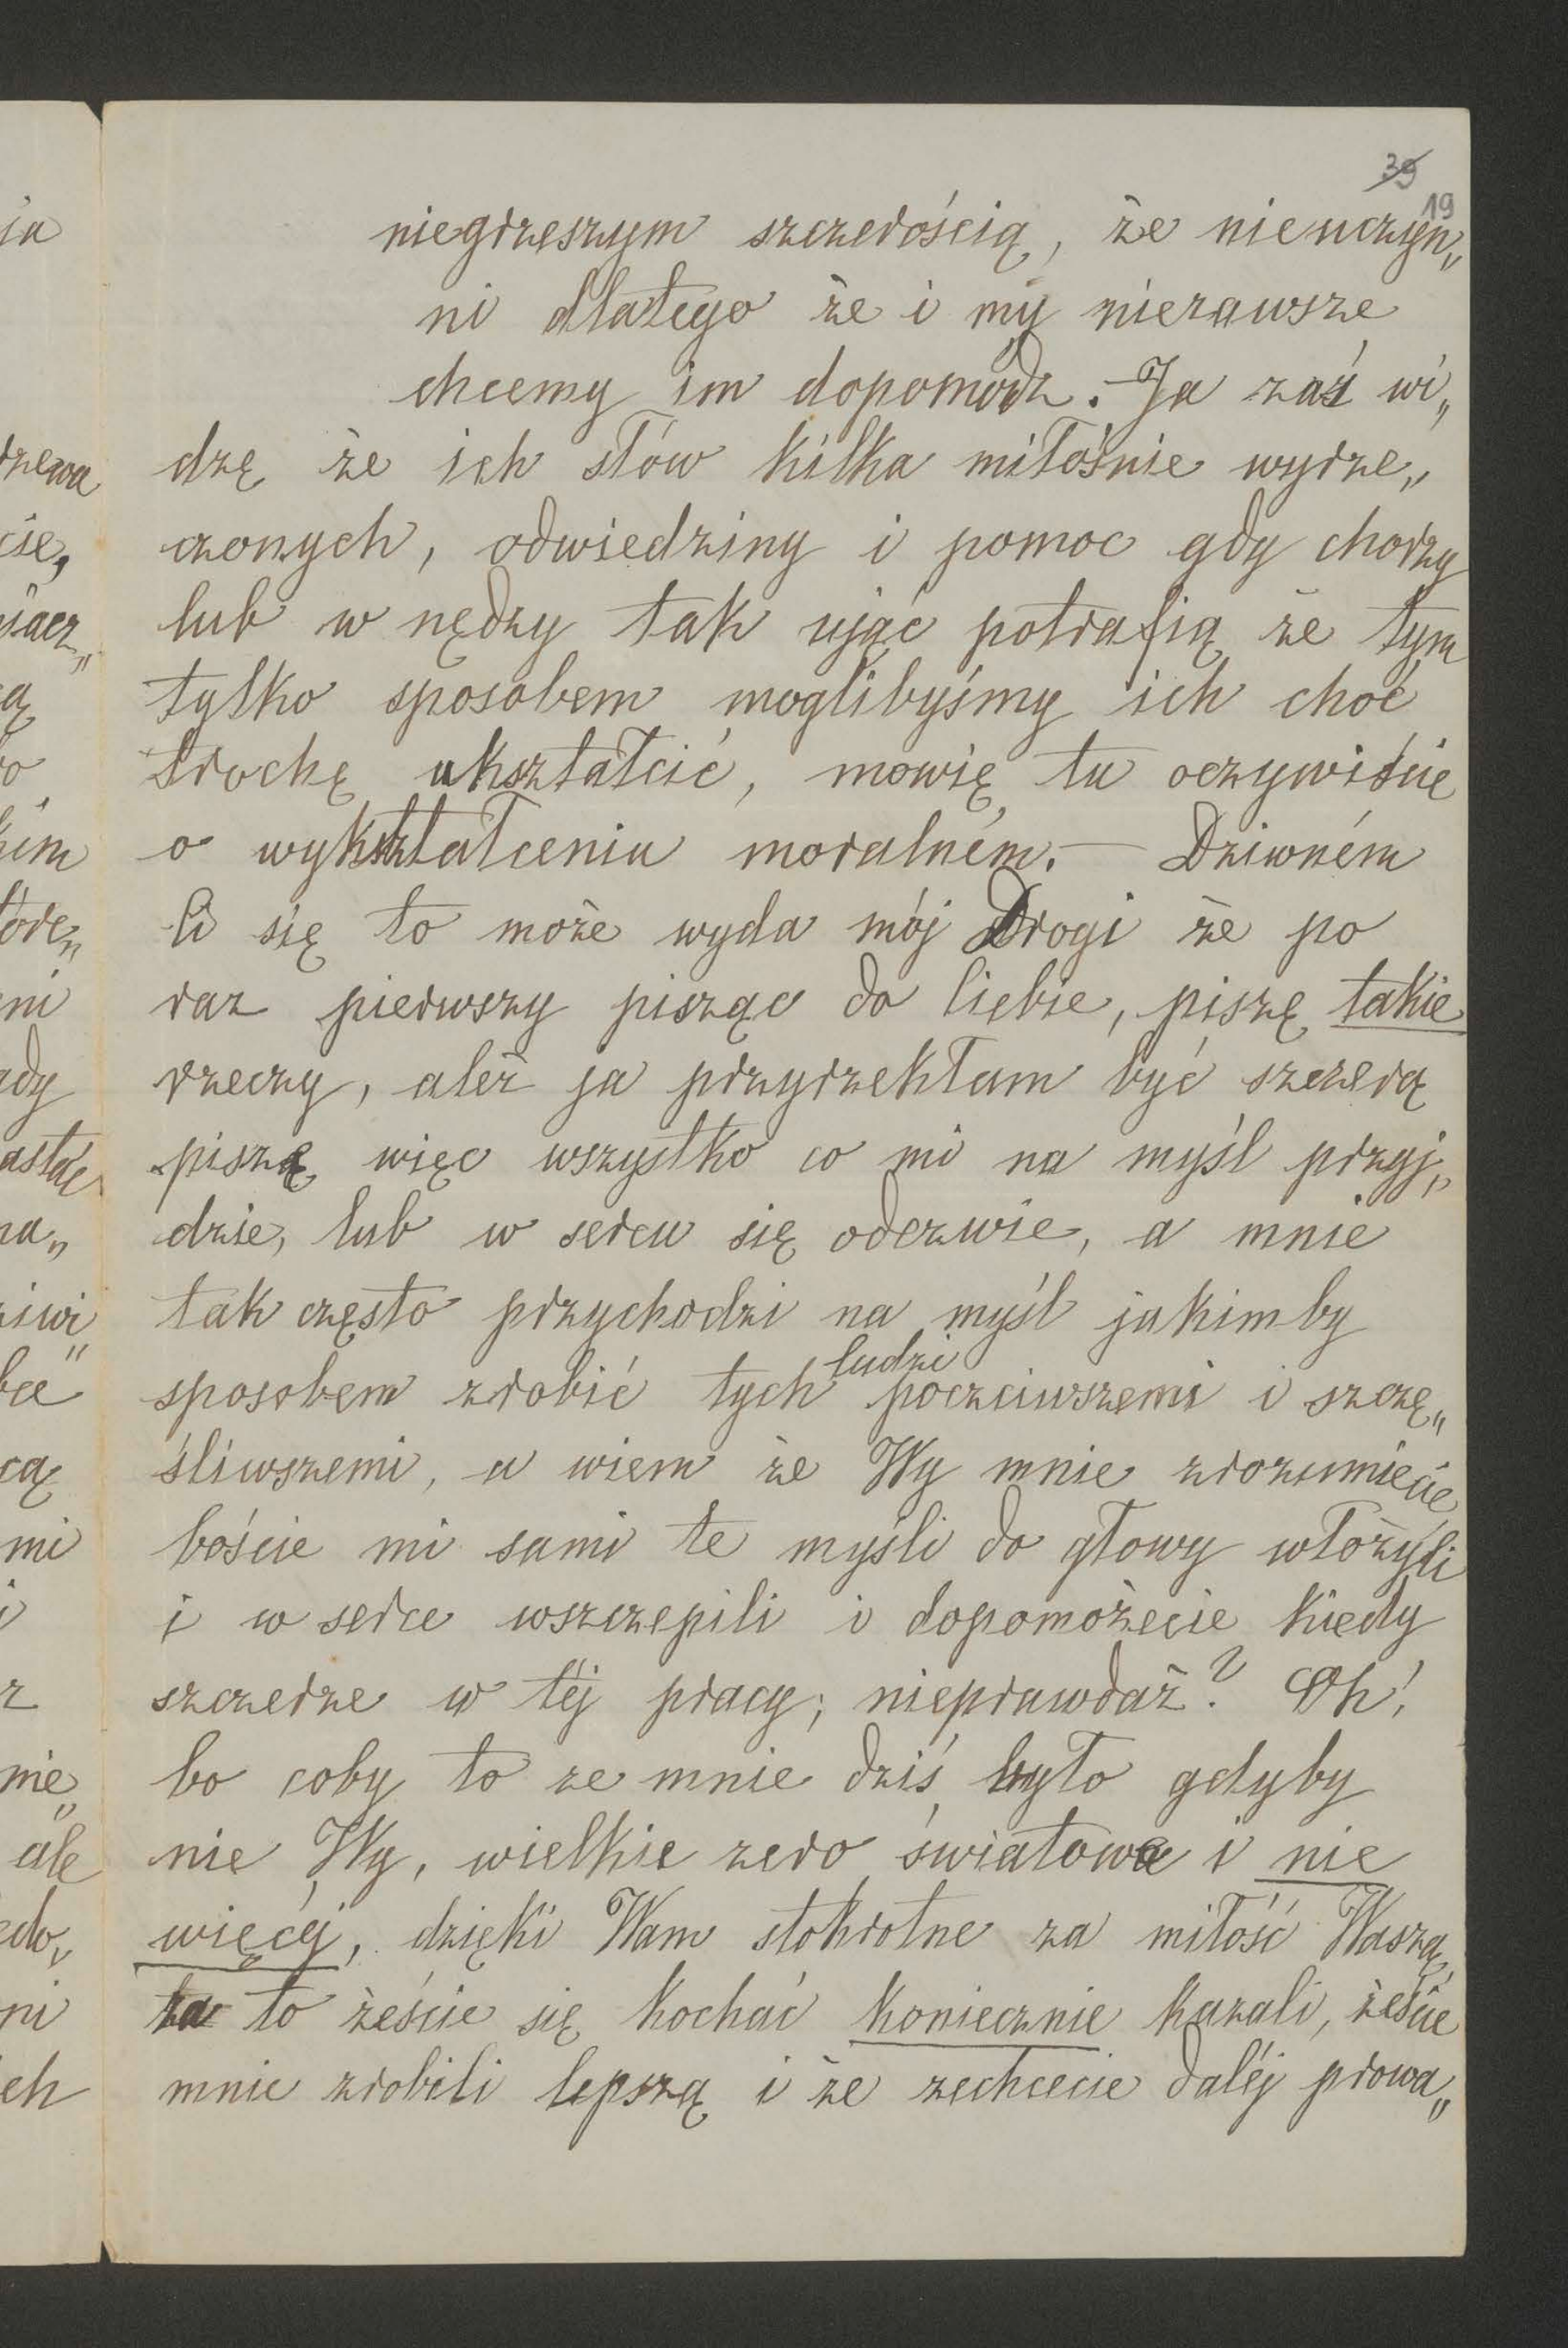 39
19
niegrzeszym szczerością, że nieuczyn„
ni dlatego że i my niezawsze
chcemy im dopomódz. – Ja zaś wi„
dzę że ich słów kilka miłośnie wyrze„
czonych, odwiedziny i pomoc gdy chorzy
lub w nędzy tak ująć potrafią że tym
tylko sposobem moglibyśmy ich choć
trochę ukształcić, mowię tu oczywiście
o wykształceniu moralném. – Dziwném
Ci się to może wyda mój Drogi że po
raz pierwszy pisząc do Ciebie, piszę takie
rzeczy, aleź ja przyrzekłam być szczerą
piszę więc wszystko co mi na myśl przyj„
dzie, lub w sercu się odezwie, a mnie
tak często przychodzi na myśl jakimby
sposobem zrobić tych ludzi poczciwszemi i szczę„
śliwszemi, a wiem że Wy mnie zrozumiecie
boście mi sami te myśli do głowy włożyli
i w serce wszczepili i dopomożecie kiedy
szczerze w téj pracy; nieprawdaż? Oh!
bo coby to ze mnie dziś było gdyby
nie Wy, wielkie zero światowe i nie
więcéj, dzięki Wam stokrotne za miłość Waszą,
za to żeście się kochać koniecznie kazali, żeście
mnie zrobili lepszą i że zechcecie daléj prowa„